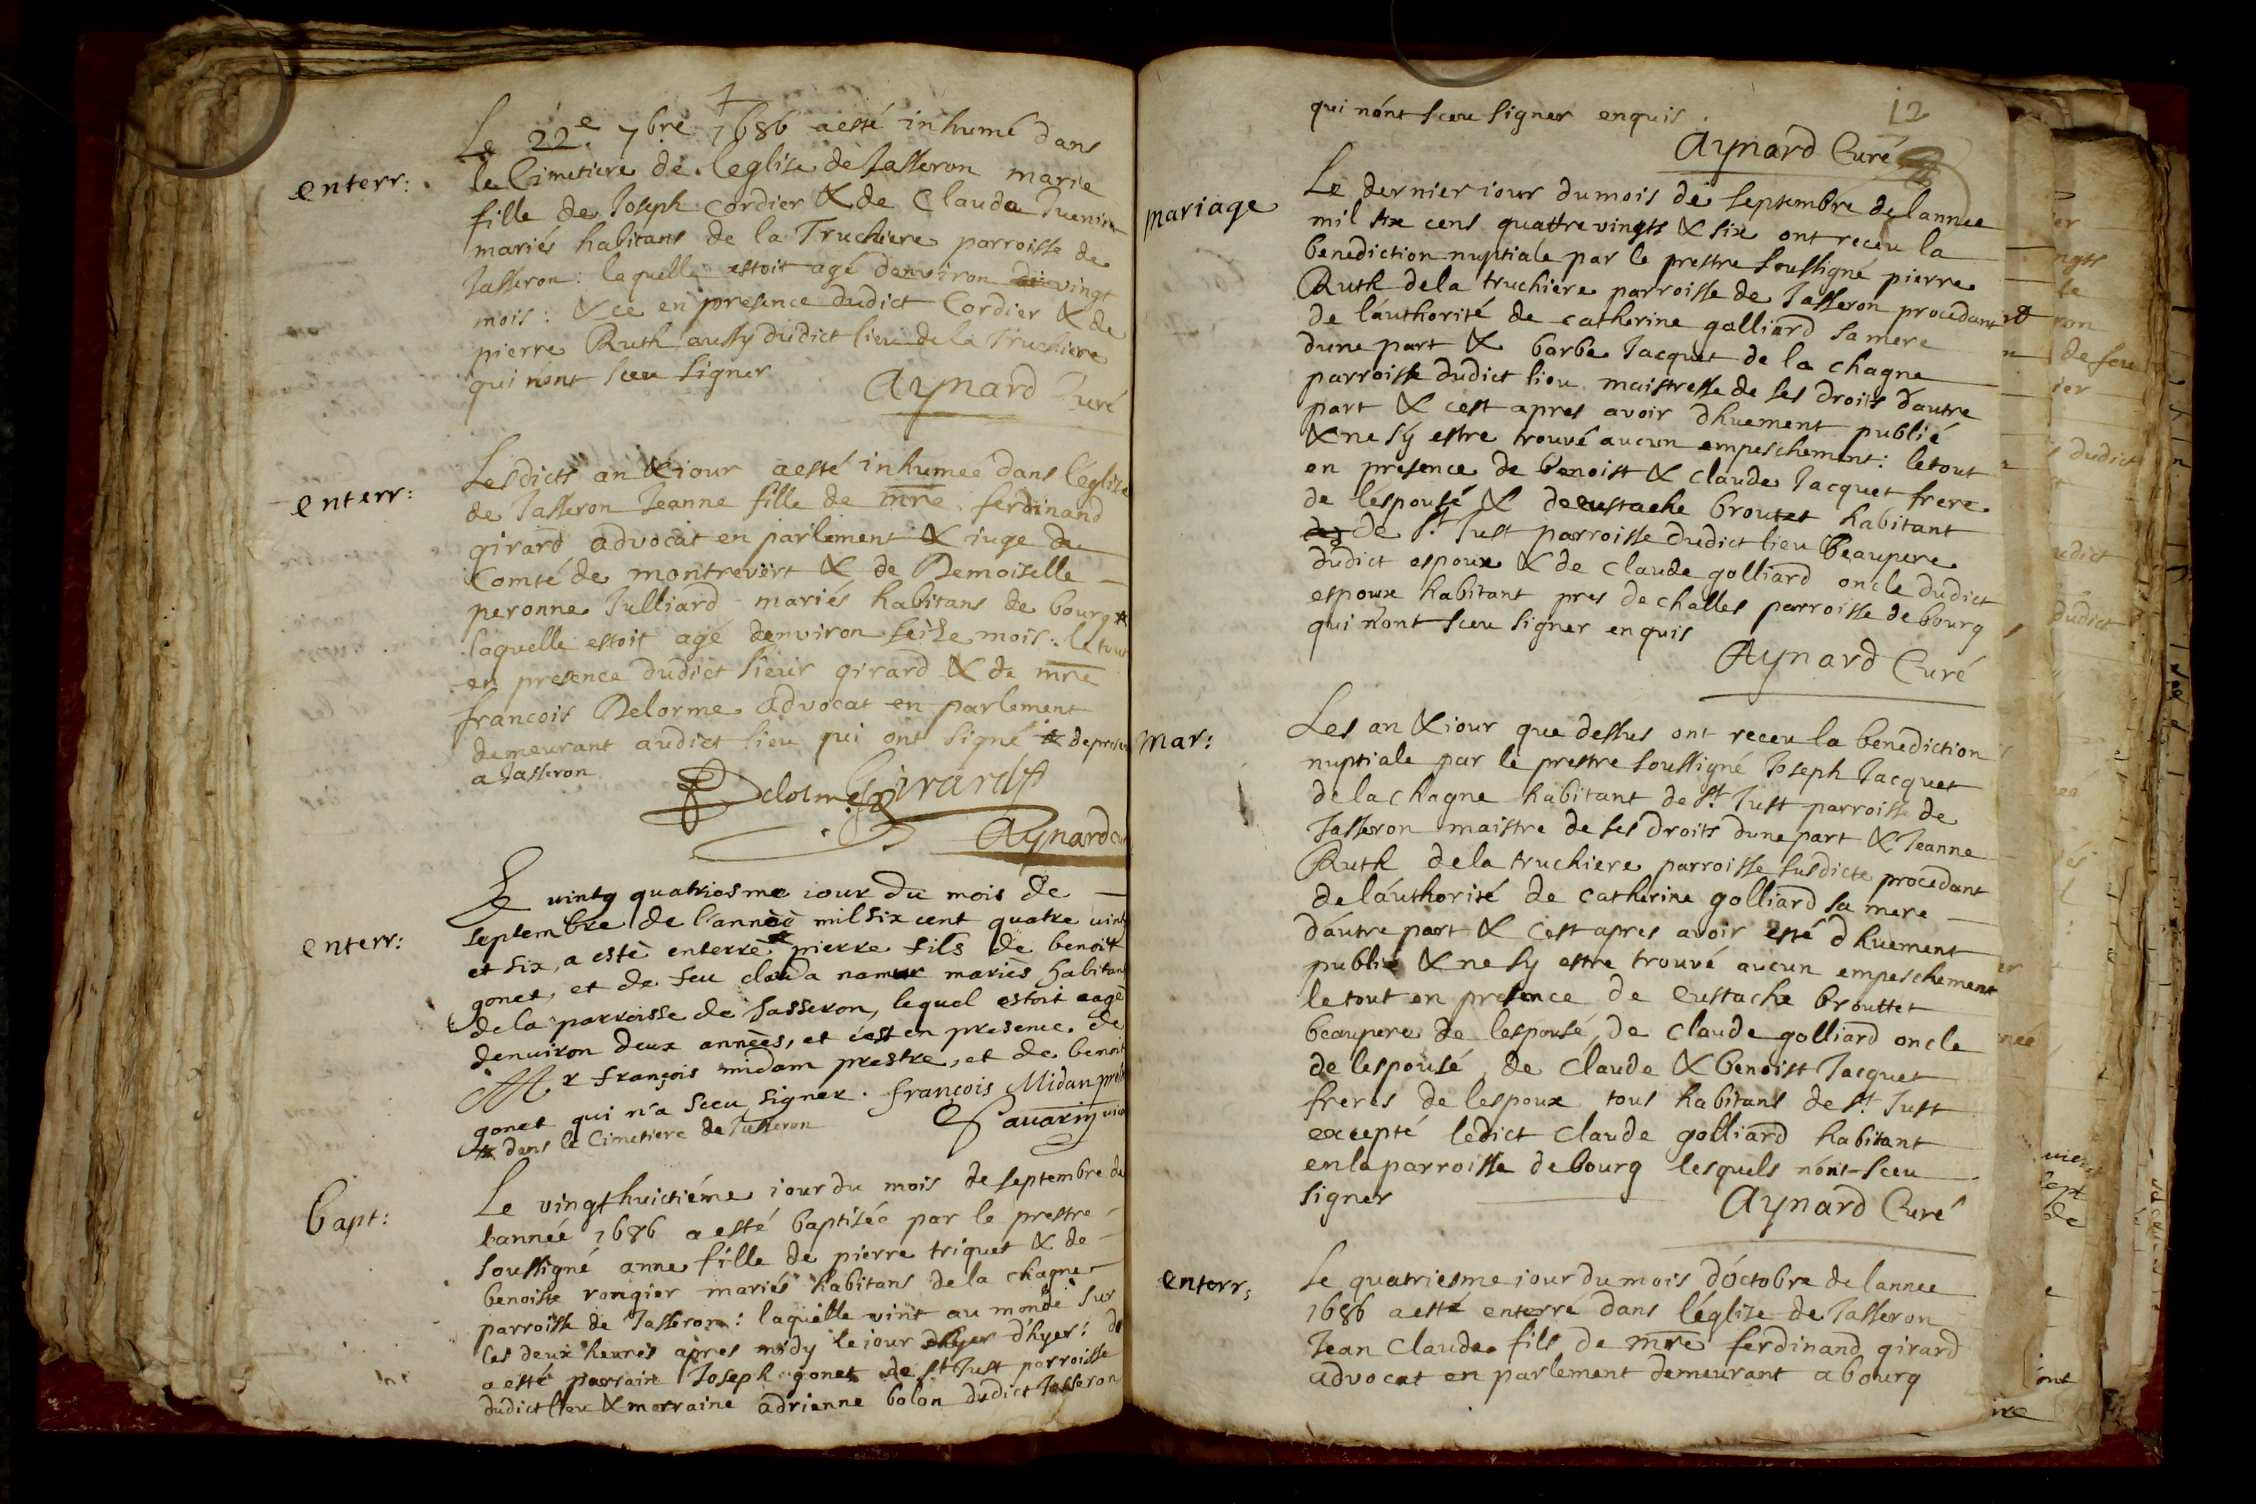 enterr:
Le 22e 7bre 1686 a esté inhumé dans
le Cimetiere de leglise de Jasseron marie
fille de Joseph Cordier & de Clauda
mariés habitans de la Truchiere parroisse de
Jasseron: laquelle estoit agé denviron vingt
mois: & ce en presence dudict Cordier & de
pierre Ruth aussy dudict lieu de la Truchiere
qui nont sceu signer
Aynard Curé
enterr:
Lesdicts an & jour a esté inhumeé dans l'église
de Jasseron Jeanne fille de mre ferdinand
girard advocat en parlement & iuge du
Comté de montrevert & de Demoiselle
peronne Julliard mariés habitans de bourg
laquelle estoit agé denviron seize mois: le tout
en presence dudict sieur girard & de mre
francois Delorme advocat en parlement
demeurant audict lieu qui ont signé & de present
a Jasseron
Delorme Girard
Aynard Cu
enterr:
Le vintg quatriesme iour du mois de
septembre de l'anneè mil six cent quatre vint
et six, a estè enterrè pierre fils de benoit
gonet, et de feu clauda namur mariès habitans
de la parroisse de Jasseron, lequel estoit aagè
denuiron deux annèes, et c'est en presence de
Mr françois midam prestre, et de benoit
gonet qui n'a sceu signer. françois Midan prestre
dans le Cimetiere de Jasseron
Sauarin vic
bapt:
Le vingthuictiéme iour du mois de septembre de
l'année 1686 a esté baptisée par le prestre
soussigné anne fille de pierre triquet & de
benoiste rongier mariés habitans de la chagne
parroisse de Jasseron: laquelle vint au monde sur
les deux heures apres midy le iour d'hyer d'hyer:
a esté parrain Joseph gonet de St Just parroisse
dudict lieu & marraine adrienne bolon dudict Jasseron
12
qui nónt sceu signer enquis.
Aynard Curé
mariage
Le dernier iour du mois de septembre de lannee
mil six cens quattre vingts & six ont receu la
benediction nuptiale par le prestre soussigné pierre
Ruth dela truchiere parroisse de Jasseron procedant
de láuthorité de catherine galliard sa mere
dune part & barbe Jacquet de la chagne
parroisse dudict lieu maistresse de ses droits d'autre
part & cest apres avoir dhuement publié
& ne sý estre trouvé aucun empeschement: le tout
en presence de benoist & claude Jacquet frere
de léspousé & de eustache broutet habitant
de St Just parroisse dudict lieu beaupere
dudict espoux & de claude golliard oncle dudict
espoux habitant pres de challes parroisse de bourg
qui nont sceu signer enquis
Aynard Curé
mar:
Les an & iour que dessus ont receu la benediction
nuptiale par le prestre soussigné Joseph Jacquet
de la chagne habitant de St Just parroisse de
Jasseron maistre de ses droits dune part & Jeanne
Ruth dela truchiere parroisse susdicte procedant
de láuthorité de catherine golliard sa mere
dáutre part & cest apres avoir esté dhuement
publié & ne sy estre trouvé aucun empeschement
le tout en presence de eustache brouttet
beaupere de lespousé, de claude golliard oncle
de lespousé, de claude & benoist Jacquet
freres de lespoux tous habitans de St Just
excepté ledict claude golliard habitant
en la parroisse de bourg lesquels nónt sceu
signer
Aynard Curé
enterr:
Le quatriesme iour du mois dóctobre de lannee
1686 a esté enterré dans l'église de Jasseron
Jean Claude fils de mre ferdinand girard
advocat en parlement demeurant a bourg